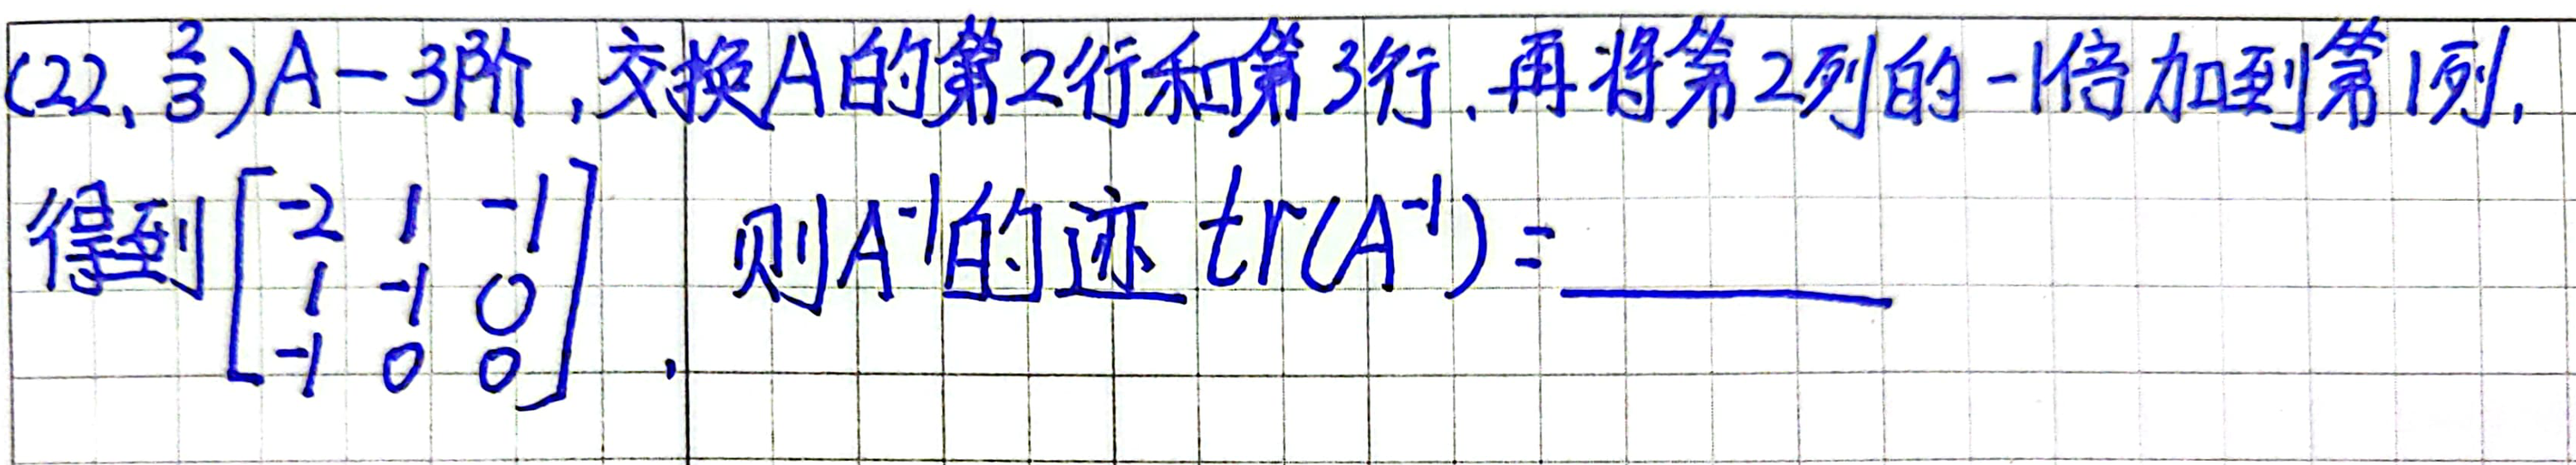 (22, 2/3) A-3阶, 交换A的第2行和第3行, 再将第2列的-1倍加到第1列,
得到 [-2 1 -1; 1 -1 0; -1 0 0]. 则A⁻¹的迹 tr(A⁻¹)=______